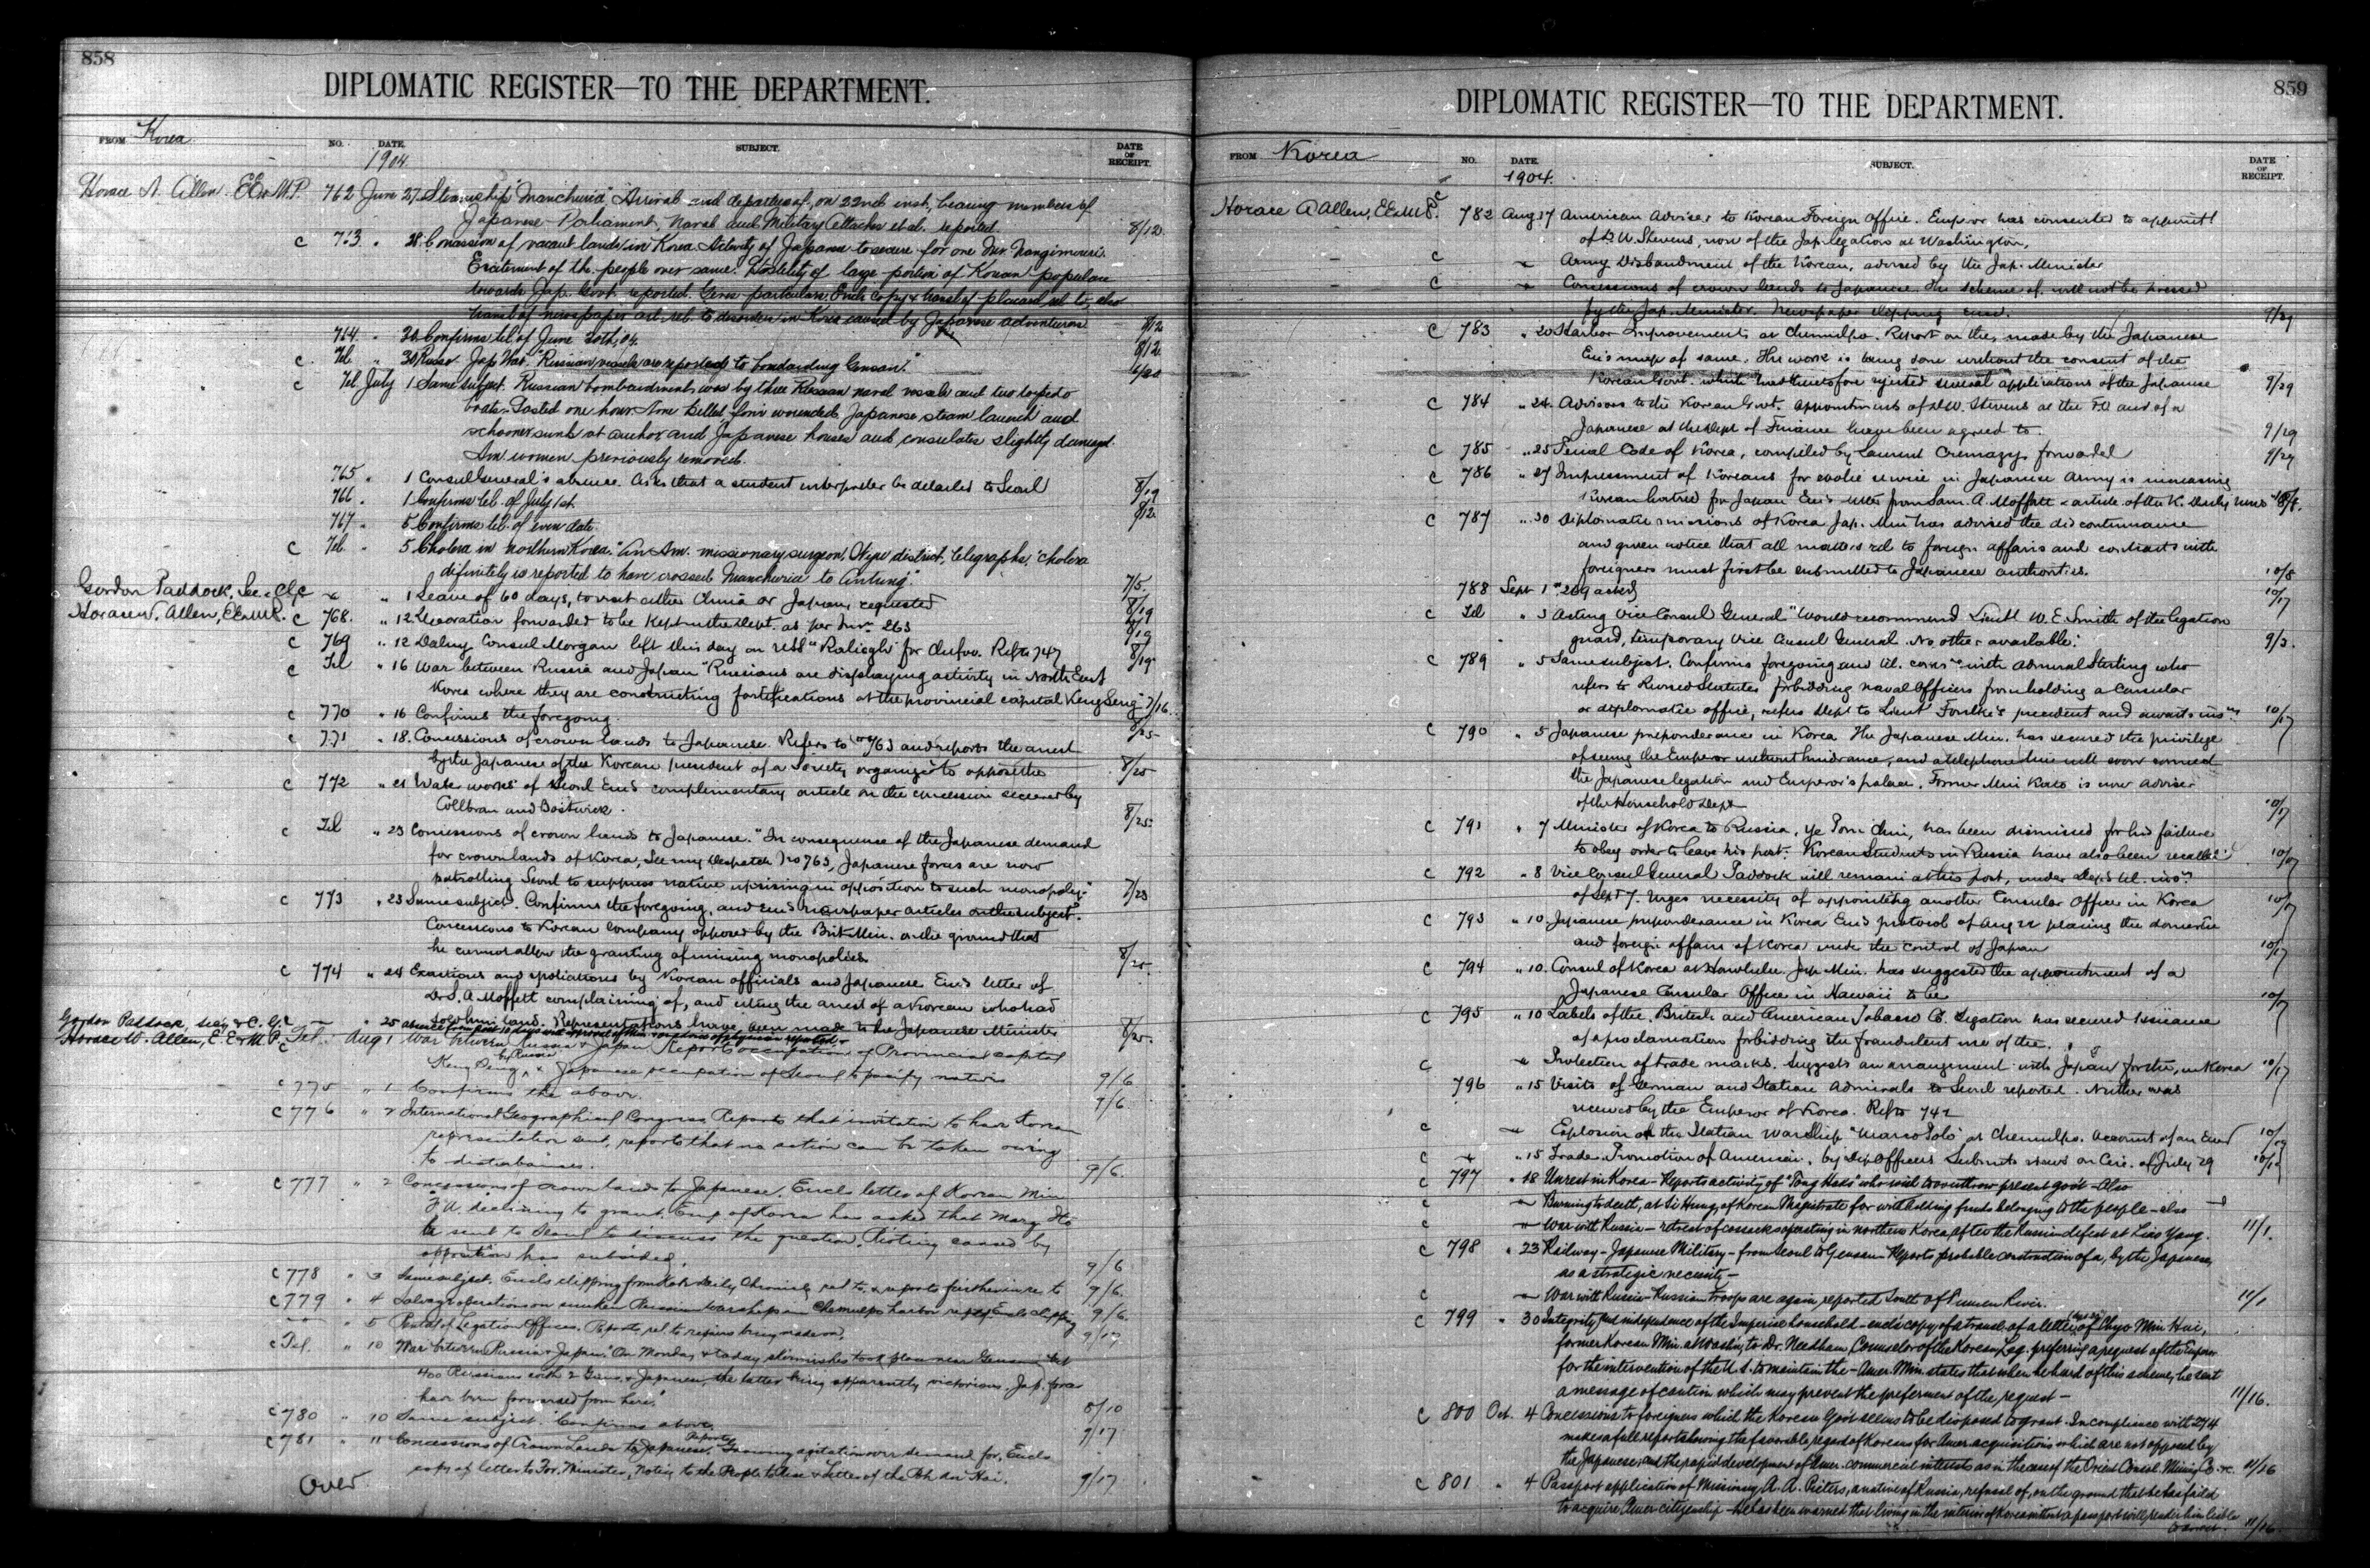 858
DIPLOMATIC REGISTER—TO THE DEPARTMENT.
FROM Korea
NO. DATE. SUBJECT. DATE OF RECEIPT.
1904
Horace N. Allen. EE&M.P. 762 June 27. Steamship "Manchuria" Arrival and departure of, on 22nd inst., bearing members of
Japanese Parliament, Naval and Military Attaches et al. reported. 8/12
c 763 " 28. Concession of vacant lands in Korea. Activity of Japanese to secure for one Mr. Nangimori.
Excitement of the people over same. Hostility of large portion of Korean populace
towards Jap. Govt. reported. Gives particulars. Encls copy & transl of placard rel. to, also
transl of newspaper art. rel. to disorders in Korea caused by Japanese adventurers 8/12
764 " 30. Confirms tel. of June 30th, 04. 8/12
c. Tel. " 30. Russo-Jap War. "Russian vessels are reported to bombarding Gensan." 6/30
c Tel. July 1 Same subject. Russian bombardment was by three Russian naval vessels and two torpedo
boats. Lasted one hour. None killed, four wounded. Japanese steam launch and
schooner sunk at anchor and Japanese houses and consulates slightly damaged.
Am women previously removed.
765 " 1 Consul General's absence. Asks that a student interpreter be detailed to Seoul 8/19
766 " 1 Confirms tel. of July 1st. 8/12
767 " 5 Confirms tel. of even date.
c Tel. " 5 Cholera in northern Korea. "An Am. missionary surgeon, Wiju district, telegraphs, 'Cholera
definitely is reported to have crossed Manchuria to Antung'." 7/5.
Gordon Paddock, Sec & C.G. c " 1 Leave of 60 days, to visit either China or Japan, requested 8/19
Horace N. Allen, EE&MP. c 768. " 12 Decoration forwarded to be kept in the Dept. as per Instn 263 8/19
c 769 " 12 Dalny Consul Morgan left this day on USS "Raliegh" for Chefoo. Refs to 747 8/19
c Tel " 16 War between Russia and Japan "Russians are displaying activity in North East
Korea where they are constructing fortifications at the provincial capital Keng Seng" 7/16.
c 770 " 16 Confirms the foregoing. 8/25
c 771 " 18. Concessions of crown lands to Japanese. Refers to No 763 and reports the arrest
by the Japanese of the Korean president of a Society organized to oppose the 8/25
c 772 " 21 Water works of Seoul Encls complementary article on the concession secured by
Collbran and Bostwick. 8/25
c Tel " 23 Concessions of crown lands to Japanese. "In consequence of the Japanese demand
for crown lands of Korea, See my Despatch No 763, Japanese forces are now
patrolling Seoul to suppress native uprising in opposition to such monopoly." 7/23
c 773 " 23 Same subject. Confirms the foregoing, and Encls newspaper articles on the subject.
Concessions to Korean Company opposed by the Brit. Min. on the ground that
he cannot allow the granting of mining monopolies. 8/25.
c 774 " 24 Exactions and spoliations by Korean officials and Japanese Encls letter of
Dr S. A. Moffett complaining of, and citing the arrest of a Korean who had
sold him land. Representations have been made to the Japanese Minister 8/25.
Gordon Paddock, Sec'y & C. G. — " 25 absence from post 10 days
Horace N. Allen, E.E.&M.P. c Tel. Aug 1 War between Russia & Japan Reports occupation of Provincial capital
Keng Seng by Russia, & Japanese occupation of Seoul to pacify natives 9/6
c 775 " 1 Confirms the above. 9/6
c 776 " 2 International Geographical Congress, Reports that invitation to have Korean
representation sent, reports that no action can be taken owing
to disturbances. 9/6
c 777 " 2 Concessions of crown lands to Japanese. Encls letter of Korean Min
F.A. declining to grant. Emp. of Korea has asked that Marq. Ito
be sent to Seoul to discuss the question. Rioting caused by
opposition has subsided. 9/6
c 778 " 3 Same subject. Encls clipping from Kobe Daily Chronicle, rel to, & reports further in re to 9/6.
c 779 " 4 Salvage operations on sunken Russian warships in Chemulpo harbor Encls clipping 9/6.
" 5 Rental of Legation Offices. Reports rel to repairs being made on. 9/17
c Tel. " 10 War between Russia & Japan. "On Monday & today skirmishes took place near Gensan bet
400 Russians with 2 Guns, & Japanese, the latter being apparently victorious. Jap. forces
have been forwarded from here." 8/10
c 780 " 10 Same subject. Confirms above. 9/17
c 781 " 11 Concessions of Crown Lands to Japanese. Reports growing agitation over demand for, Encls
copy of letter to For. Minister, Notice to the People to Rise & Letter of the Poh An Hai. 9/17
Over
859
DIPLOMATIC REGISTER—TO THE DEPARTMENT.
FROM Korea
NO. DATE. SUBJECT. DATE OF RECEIPT.
1904.
Horace N Allen, EE&MP. c 782 Aug 17 American Adviser to Korean Foreign Office. Emperor has consented to appoint
of D.W. Stevens, now of the Jap. legation at Washington,
c " Army Disbandment of the Korean, advised by the Jap. Minister
c " Concessions of crown lands to Japanese. The scheme of, will not be pressed
by the Jap. Minister. Newspaper clipping encd. 9/29
c 783 " 20 Harbor Improvements at Chemulpo. Report on the, made by the Japanese
Encls map of same. The work is being done without the consent of the
Korean Govt. which has theretofore rejected several applications of the Japanese 9/29
c 784 " 24. Advisors to the Korean Govt. Appointments of D.W. Stevens at the F.O. and of a
Japanese at the Dept of Finance have been agreed to. 9/29
c 785 " 25 Penal Code of Korea, compiled by Laurent Cremazy, forwarded 9/29
c 786 " 27 Impressment of Koreans for coolie service in Japanese Army is increasing
Korean hatred for Japan Encls letter from Sam. A. Moffett & article of the K. Daily News 10/8.
c 787 " 30 Diplomatic missions of Korea Jap. Min has advised the discontinuance
and given notice that all matters rel to foreign affairs and contracts with
foreigners must first be submitted to Japanese authorities. 10/8
788 Sept 1 " 269 acked 10/17
c Tel " 3 Acting Vice Consul General "Would recommend Lieut W. E. Smith of the legation
guard, temporary Vice Consul General. No other available." 9/3.
c 789 " 5 Same subject. Confirms foregoing and encl. corres. with Admiral Sterling who
refers to Revised Statutes forbidding naval Officers from holding a Consular
or diplomatic office, refers Dept to Lieut Foulke's precedent and awaits insns 10/17
c 790 " 5 Japanese preponderance in Korea The Japanese Min. has secured the privilege
of seeing the Emperor without hindrance, and a telephone line will soon connect
the Japanese legation and Emperor's palace. Former Min Kato is now adviser
of the Household Dept 10/17
c 791 " 7 Minister of Korea to Russia, Ye Pom Chin, has been dismissed for his failure
to obey order to leave his post. Korean Students in Russia have also been recalled 10/17
c 792 " 8 Vice Consul General Paddock will remain at his post, under Dept's tel. insn
of Sept 7. Urges necessity of appointing another Consular Officer in Korea 10/17
c 793 " 10 Japanese preponderance in Korea Encls protocol of Aug 22 placing the domestic
and foreign affairs of Korea under the control of Japan 10/17
c 794 " 10. Consul of Korea at Honolulu. Jap. Min. has suggested the appointment of a
Japanese Consular Officer in Hawaii to be 10/17
c 795 " 10 Labels of the British and American Tobacco Co. Legation has secured issuance
of a proclamation forbidding the fraudulent use of the.
c " Protection of trade marks. Suggests an arrangement with Japan for the, in Korea 10/17
796 " 15 Visits of German and Italian Admirals to Seoul reported. Neither was
received by the Emperor of Korea. Refs 742
c " Explosion on the Italian Warship "Marco Polo" at Chemulpo. Account of an Encd 10/19
c " " 15 Trade. Promotion of American, by Dip Officers Submits views on Circ. of July 29
c 797 " 18 Unrest in Korea — Reports activity of "Tong Haks" who wish to overthrow present gov't — Also
c " Burning to death, at Si Hung, of Korean Magistrate for withholding funds belonging to the people — also
c " War with Russia — retreat of cossacks operating in northern Korea, after the Russian defeat at Liao Yang. 11/1.
c 798 " 23 Railway — Japanese Military — from Seoul to Gensan — Reports probable construction of a, by the Japanese,
as a strategic necessity —
c " War with Russia — Russian troops are again reported South of Tumen River. 11/1
c 799 " 30 Integrity and independence of the Imperial household — encls copy of a transl. of a letter of Chyo Min Hui,
former Korean Min. at Wash'n, to Dr. Needham, Counselor of the Korean Leg. preferring a request of the Emperor
for the intervention of the U.S. to maintain the — Amer. Min. states that when he heard of this scheme, he sent
a message of caution which may prevent the preferment of the request — 11/16.
c 800 Oct. 4 Concessions to foreigners which the Korean Gov't seems to be disposed to grant. In compliance with 274
makes a full report showing the favorable regard of Koreans for Amer. acquisitions which are not opposed by
the Japanese, and the rapid development of Amer. commercial interests as in the case of the Orient Consol. Mining Co. &c. 11/16
c 801 " 4 Passport application of Missionary A. A. Pieters, a native of Russia, refusal of, on the ground that he has failed
to acquire Amer. citizenship — he has been warned that living in the interior of Korea without a passport will render him liable
to arrest. 11/16.